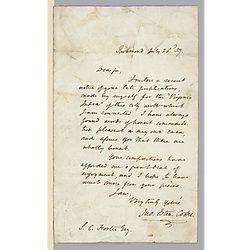 Richmond July 25th '57.
Dear Sir,
I enclose a recent
notice of your late publications,
made by myself for the "Virginia
Index" of this city with which
I am connected. I have always
found words of honest commenda-
tion pleasant in my own case,
and assure you that these are
wholly honest.
Your compositions have
afforded me a great deal of
enjoyment, and I hope to have
much more from your pieces.
I am,
Very truly yours
Jno. Esten Cooke.
S. C. Foster Esq.